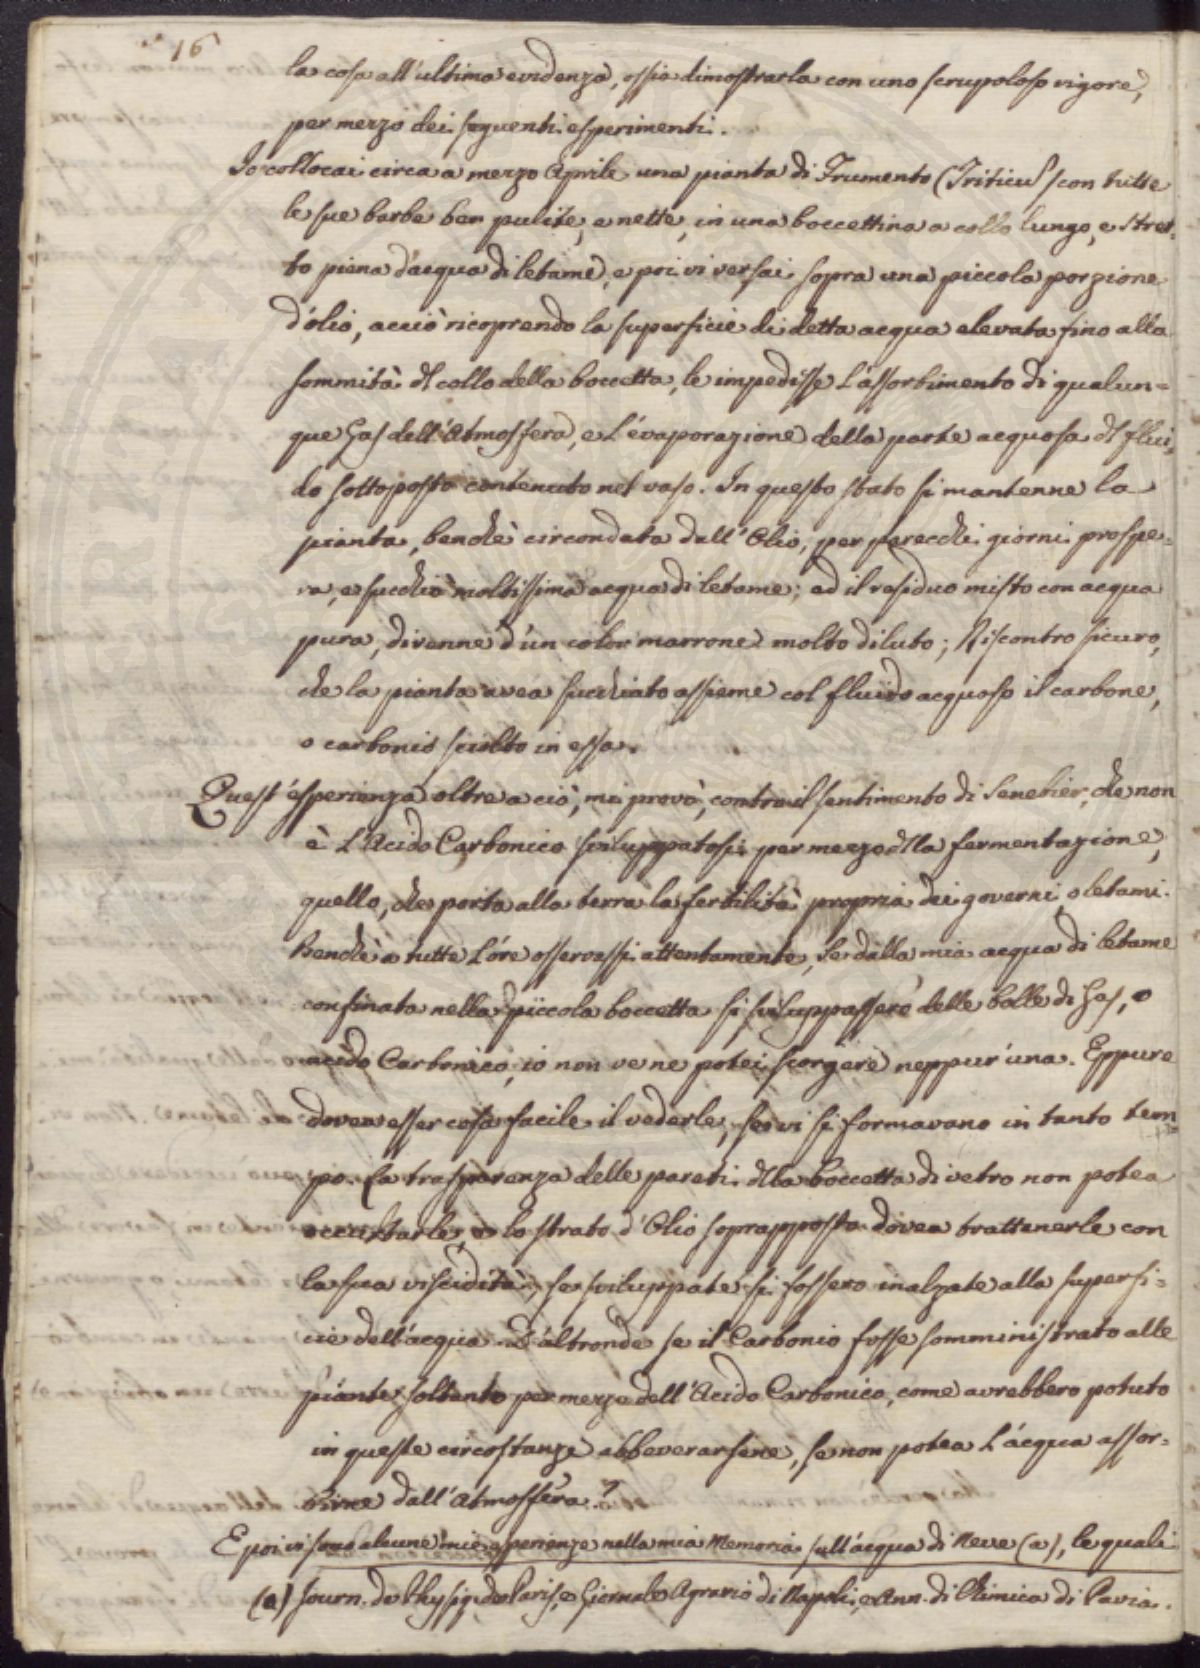 16
la cosa all'ultima evidenza, ossia dimostrarla con uno scrupoloso rigore,
per mezzo dei seguenti esperimenti.
Io collocai circa a mezzo Aprile una pianta di Frumento (Triticus) con tutte
le sue barbe ben pulite, e nette, in una boccettina a collo lungo, e stret-
to piena d'acqua di letame, e poi vi versai sopra una piccola porzione
d'olio, acciò ricoprendo la superficie di detta acqua elevata fino alla
sommità dl collo della boccetta, le impedisse l'assorbimento di qualun=
que Gas dell'Atmosfera, e l'evaporazione della parte acquosa dl flui,
do sottoposto contenuto nel vaso. In questo stato si mantenne la
pianta, benchè circondata dall'Olio, per parecchi giorni prospe=
ra, e succhiò moltissima acqua di letame; ed il residuo misto con acqua
pura, divenne d'un color marrone molto diluto; Riscontro sicuro,
che la pianta avea succhiato assieme col fluido acquoso il carbone,
o carbonio sciolto in essa.
Quest'esperienza oltre a ciò, mi provò, contro il sentimento di Senebier, che non
è l'Acido Carbonico sviluppatosi per mezzo dlla fermentazione,
quello, che porta alla terra la fertilità propria dei governi, o letami.
Benchè a tutte l'ore osservassi attentamente, se dalla mia acqua di letame
confinata nella piccola boccetta si sviluppassero delle bolle di Gas, o
acido Carbonico, io non ve ne potei scorgere neppur'una. Eppure
dovea esser cosa facile il vederle, se vi si formavano in tanto tem=
po. La trasparenza delle pareti dlla boccetta di vetro non potea
occultarle, e lo strato d'Olio soprapposto dovea trattenerle con
la sua viscidità, se sviluppate si fossero inalzate alla superfi=
cie dell'acqua. D'altronde se il Carbonio fosse somministrato alle
piante soltanto per mezzo dell'Acido Carbonico, come avrebbero potuto
in queste circostanze abbeverarsene, se non potea l'acqua assor=
birne dall'Atmosfera?
E poi vi sono alcune mie esperienze nella mia Memoria sull'acqua di Neve (a), le quali
(a) Journ. de Physiq. de Paris, e Giornale Agrario di Napoli, e Ann. di Chimica di Pavia.